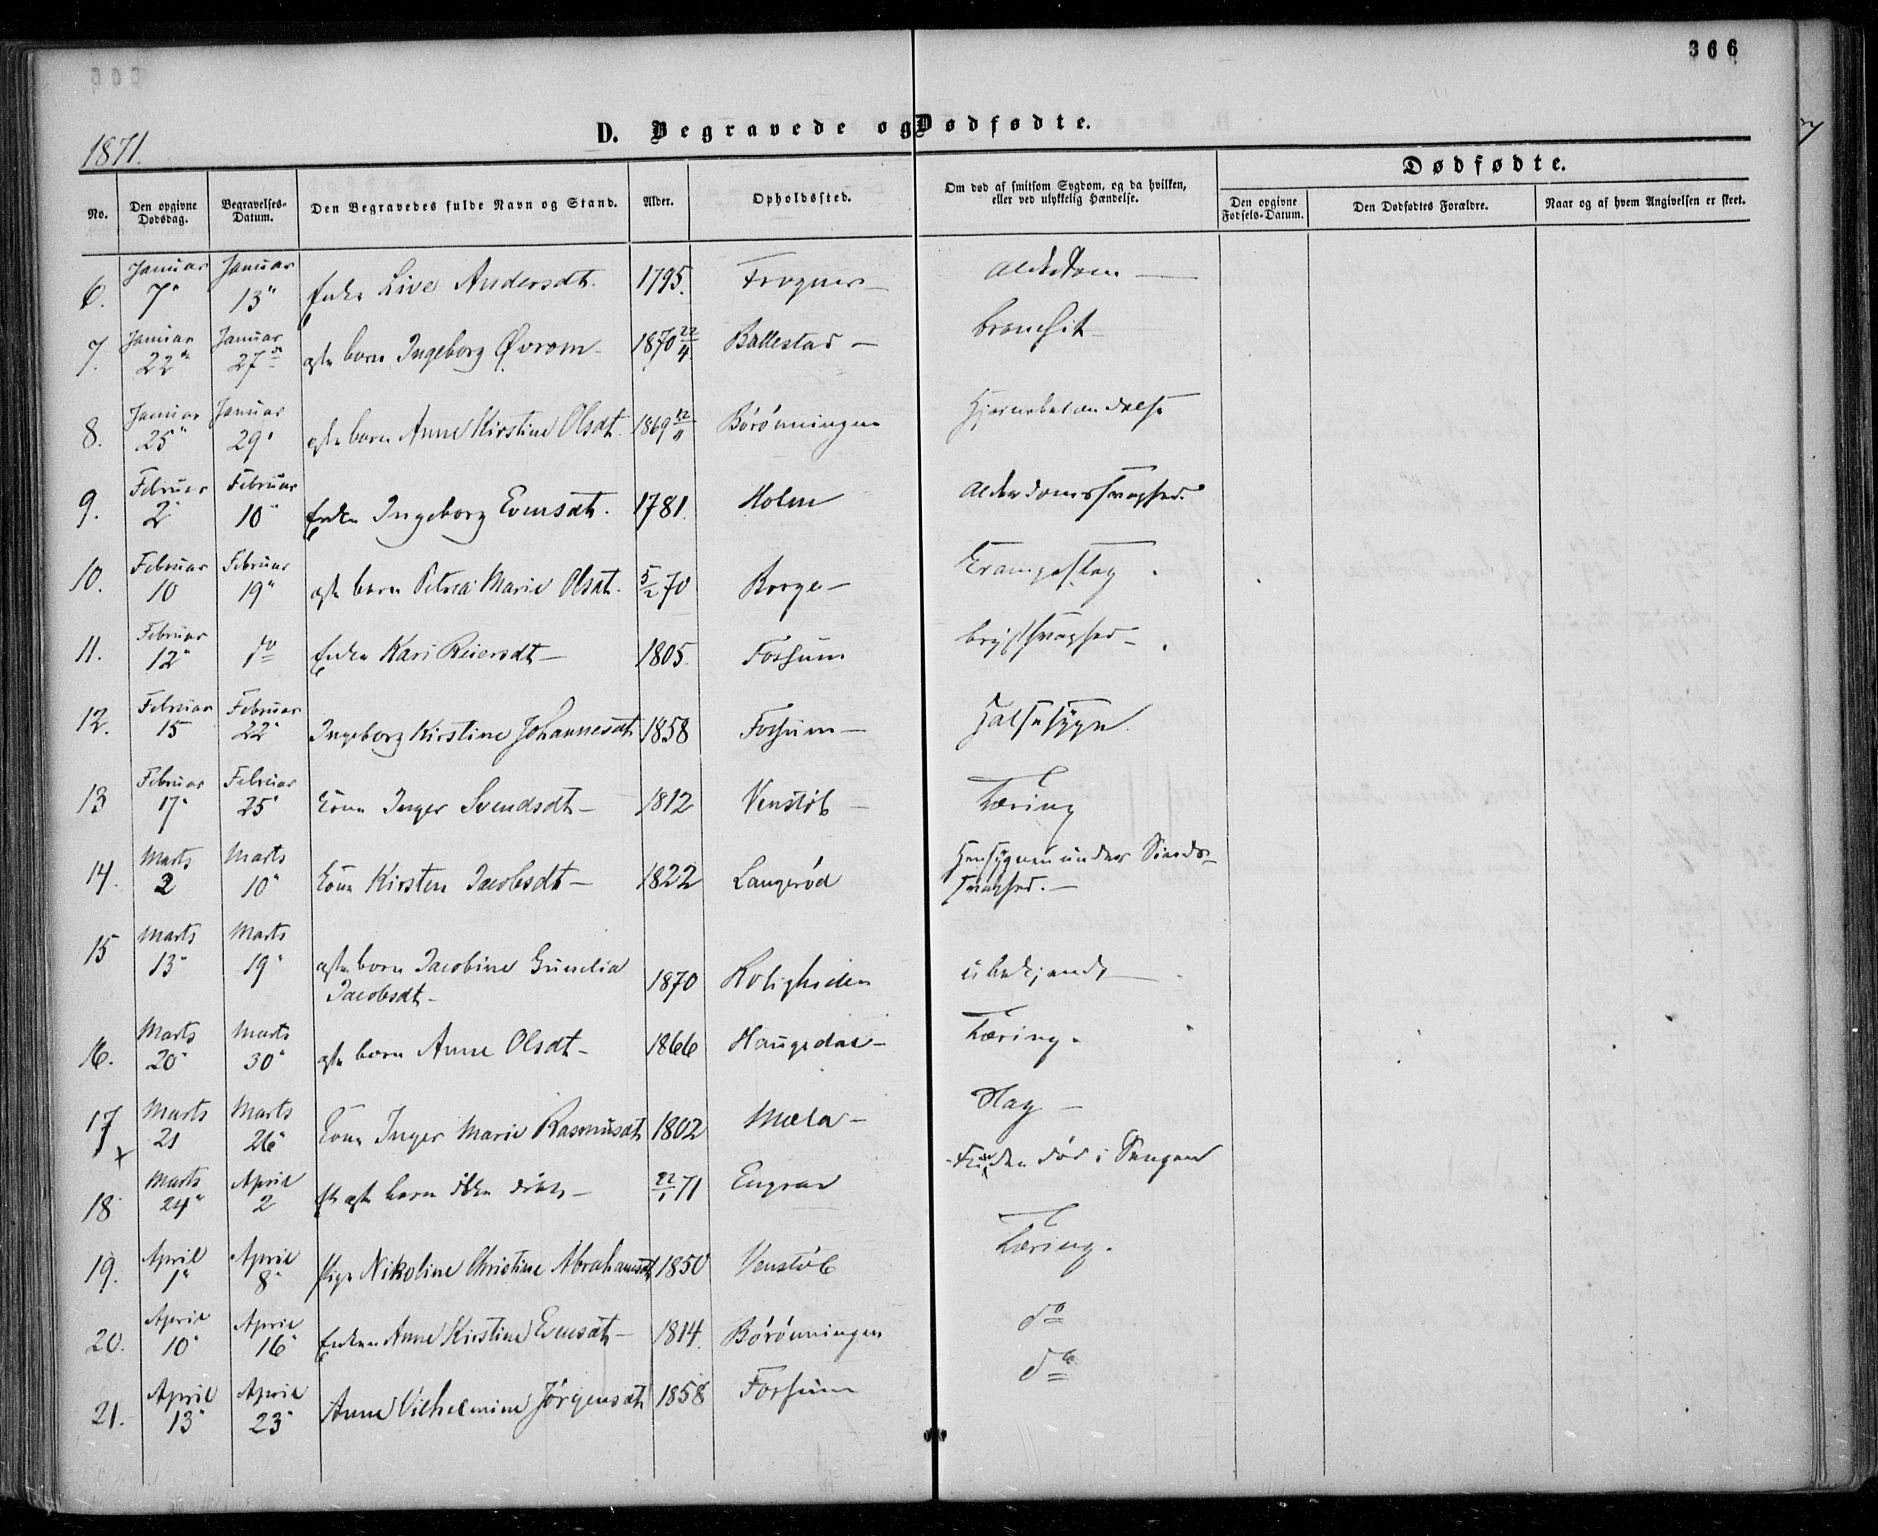 366
1871.
D. Begravede og Dødfødte.
No.
Den opgivne Dødsdag.
Begravelses-Datum.
Den Begravedes fulde Navn og Stand.
Alder.
Opholdssted.
Om død af smitsom Sygdom, og da hvilken, eller ved ulykkelig Hændelse.
Dødfødte.
Den opgivne Fødsels-Datum.
Den Dødfødtes Forældre.
Naar og af hvem Angivelsen er skeet.
6. Januar 7" Januar 13" Enke Live Andersdt. 1795. Frogner – Alderdom –
7. Januar 22" Januar 27de ægte barn Ingeborg Øvrom – 1870 22/4 Ballestad – bronchit
8. Januar 25" Januar 29" ægte barn Anne Kirstine Olsdt. 1869 12/11 Börönningen Hjernebetændelse
9. Februar 2" Februar 10" Enke Ingeborg Evensdt. 1781. Holm Alderdomssvaghed.
10. Februar 10 Februar 19" ægte barn Petrea Marie Olsdt. 5/2 70 Borge – Krampeslag
11. Februar 12" do Enke Kari Reiersdt – 1805. Fossum brystsvaghed –
12. Februar 15 Februar 22" Ingeborg Kirstine Johannesdt 1858 Fossum – Halssyge.
13 Februar 17" Februar 25" Kone Inger Svendsdt – 1812 Venstöb – Tæring
14. Marts 2 Marts 10" Kone Kirsten Jacobsdt – 1822 Langerød Hensygnen under Sinds-
svaghed. –
15 Marts 13" Marts 19" ægte barn Jacobine Gunelia
Jacobsdt – 1870 Roligheden ubekjendt –
16. Marts 20" Marts 30" ægte barn Anne Olsdt – 1866 Haugedal – Tæring.
17 x Marts 21 Marts 26" Kone Inger Marie Rasmusdt 1802 Mæla – Slag –
18 Marts 24" April 2 ægte barn ikke døbt – 22/1 71 Engrav Funden død i Sengen
19. April 1" April 8" Pige Nikoline Christine Abrahamsdt 1850 Venstöb Tæring.
20. April 10" April 16" Enken Anne Kirstine Evensdt – 1814. Börönningen do
21. April 13" April 23" Anne Vilhelmine Jørgensdt 1858 Fossum do